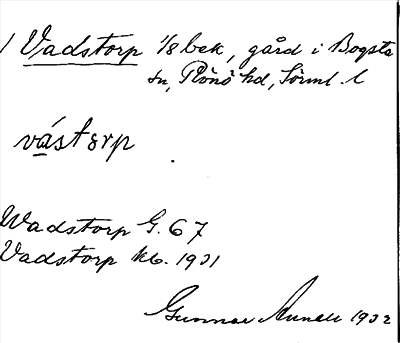 / Vadstorp 1/8 bek, gård i Bogsta
sn, Rönö hd, Sörml. l
vástərp
Wadstorp G. 67
Vadstorp kb. 1931
Gunnar 1932